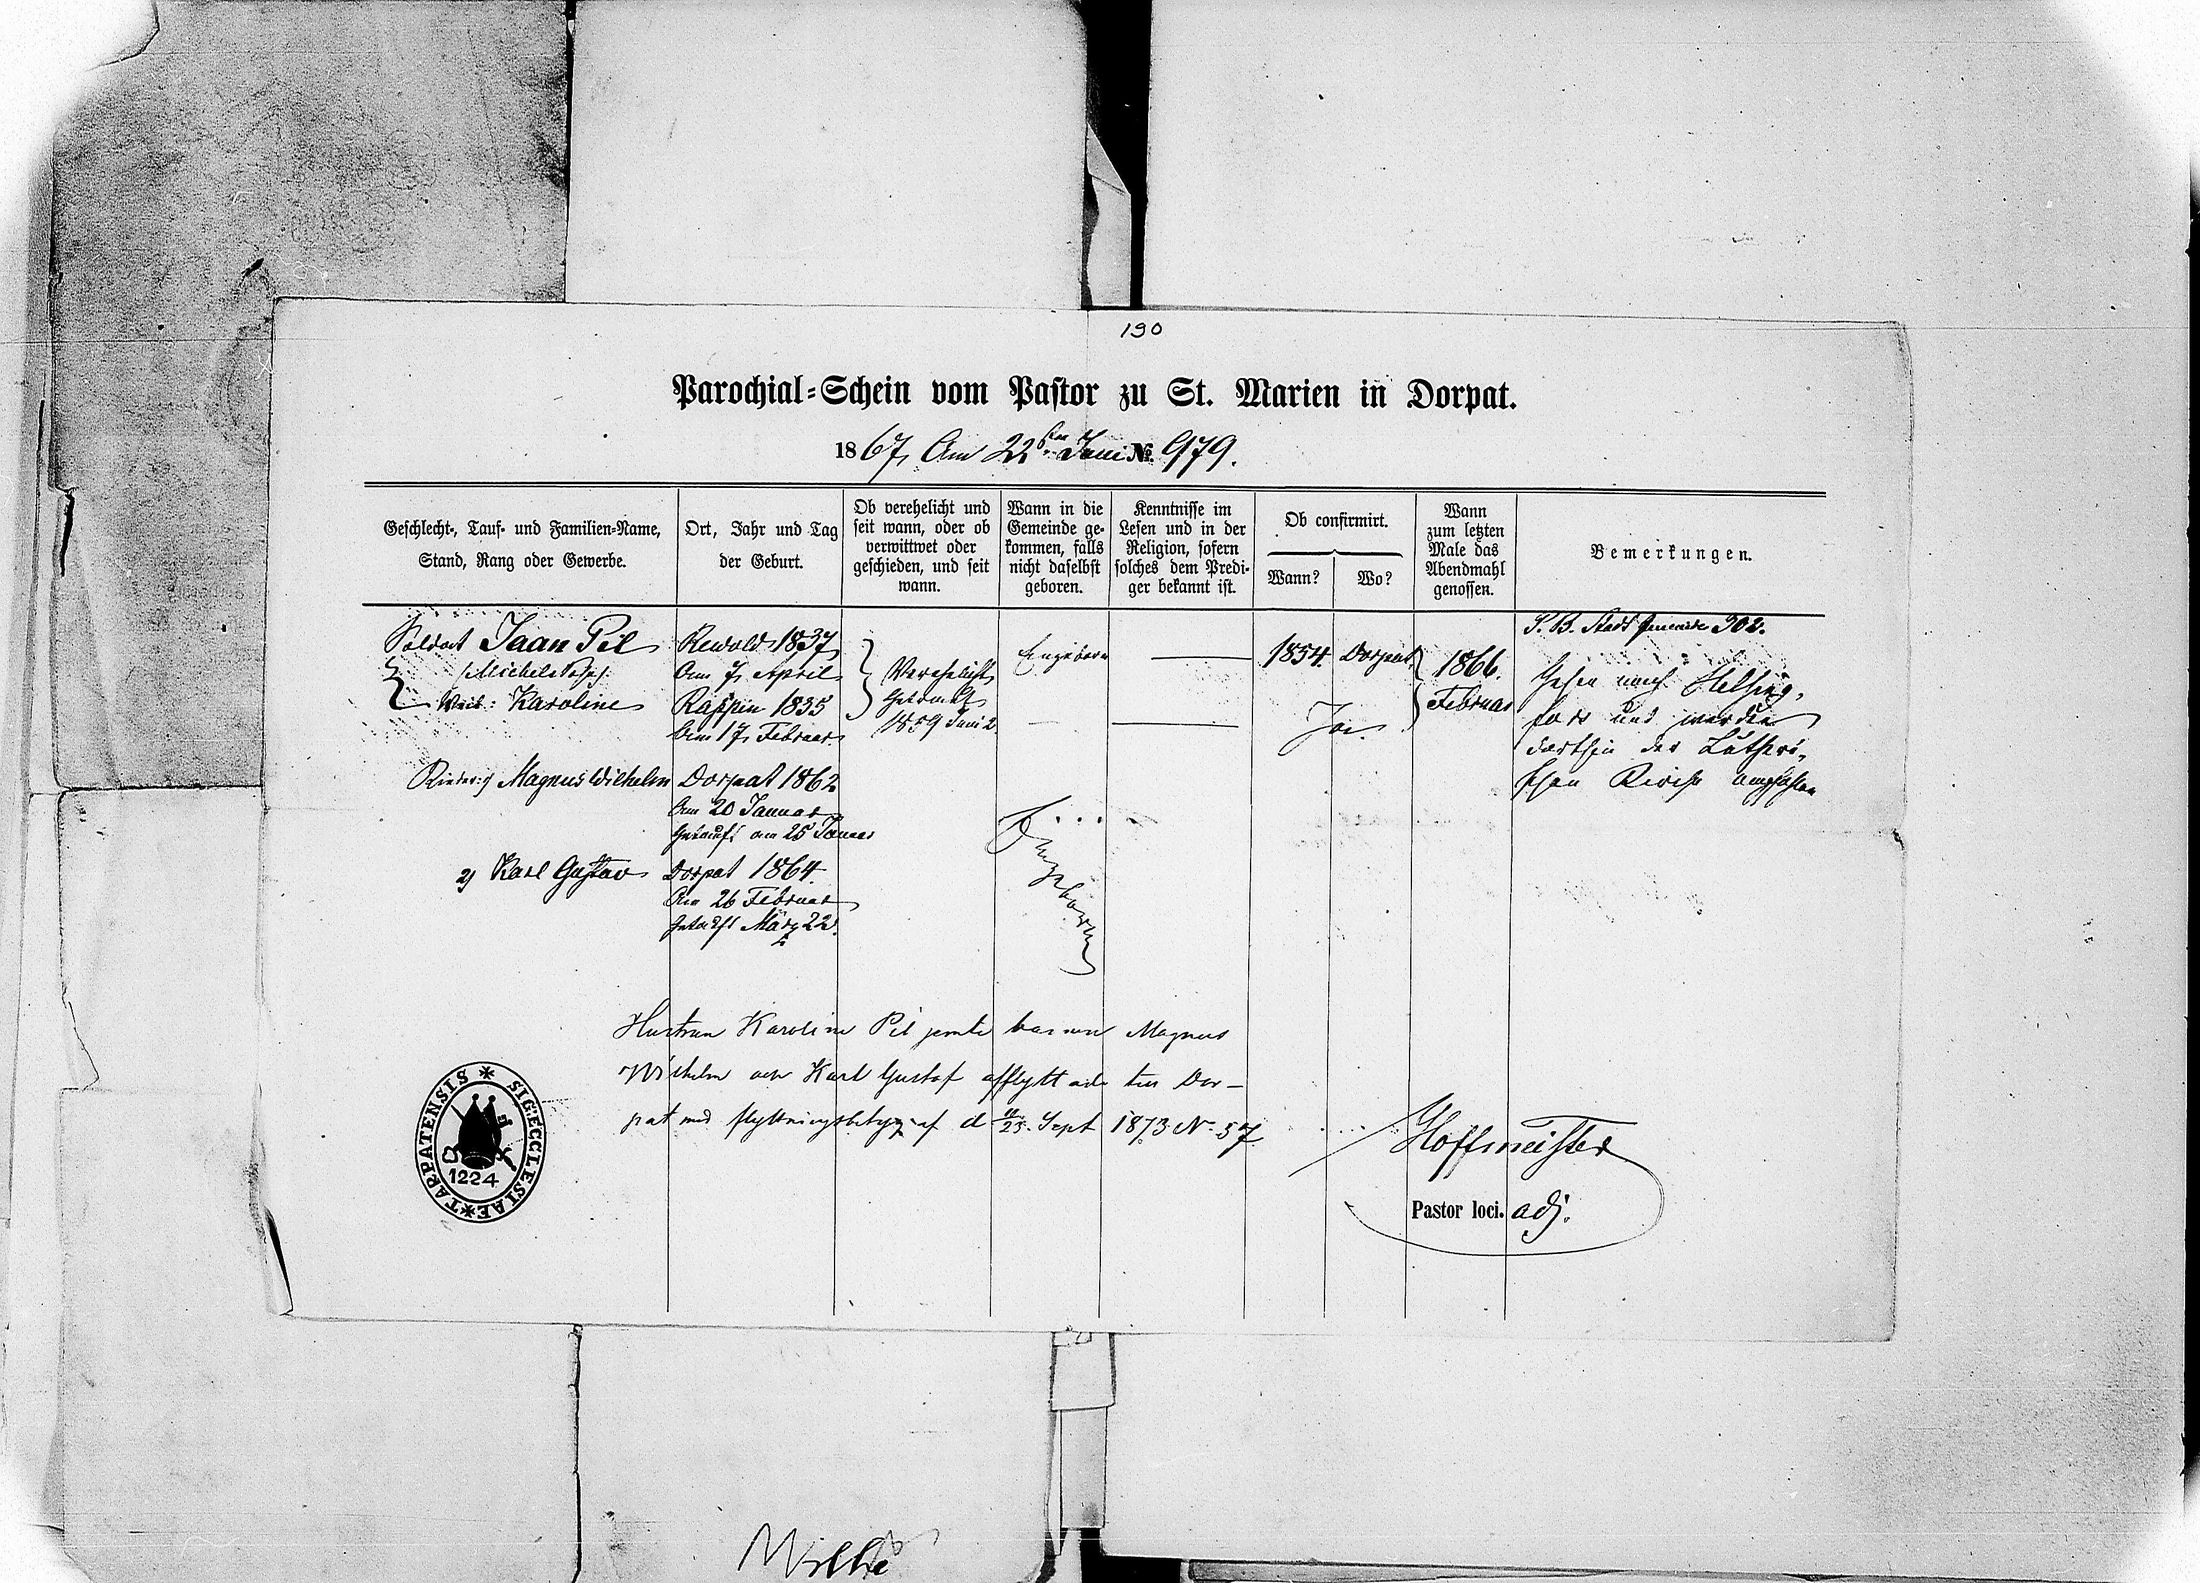 190
Parochial-Schein vom Pastor zu St. Marien in Dorpat.
1867, Am 22ten Juni № 979.
Geschlecht-, Tauf- und Familien-Name,
Stand, Rang oder Gewerbe.
Ort, Jahr und Tag
der Geburt.
Ob verehelicht und
seit wann, oder ob
verwittwet oder
geschieden, und seit
wann.
Wann in die
Gemeinde ge-
kommen, falls
nicht daselbst
geboren.
Kenntnisse im
Lesen und in der
Religion, sofern
solches dem Predi-
ger bekannt ist.
Ob confirmirt.
Wann?
Wo?
Wann
zum letzten
Male das
Abendmahl
genossen.
Bemerkungen.
Soldat Jaan Pil
Weib: Karoline
Rewold 1837
Am 7 April
Rappin 1835
Am 17 Februar
Verehelicht
Getraut
1859 Juni 2.
Eingeborn
1854. Dorpat
Ja.
1866.
Februar
P. B. Stadt Gemeinde 902.
Gehen nach Helsing-
fors und werden
dorthin der Lutheri-
schen Kirche empfohlen
Kinder: 1) Magnus Wilhelm
Dorpat 1862
Am 20 Januar
Getauft am 25 Januar
2) Karl Gustav
Dorpat 1864.
Am 26 Februar
Getauft März 22.
Eingeboren
Hustrun Karoline Pil jemte barnen Magnus
Wilhelm och Karl Gustaf afflyttade till Dor-
pat med flyttningsbetyg af d 25 Sept 1873 N 57
SIG: ECCLESIAE TARPATENSIS
1224
Hoffmeister
Pastor loci. adj.